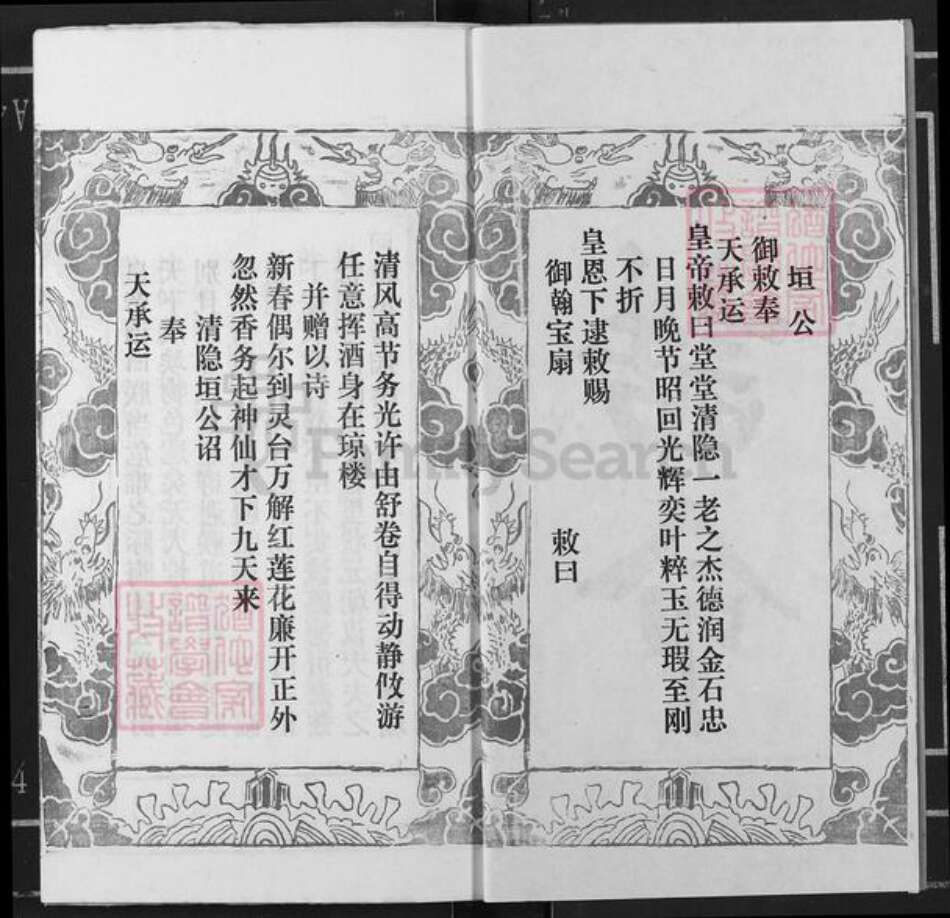 垣公
御敕奉
天承运
皇帝敕曰堂堂清隐一老之杰德润金石忠
日月晚节昭回光辉奕叶粹玉无瑕至刚
不折
皇恩下逮敕赐
御翰宝扇 敕曰
清风高节务光许由舒卷自得动静攸游
任意挥洒身在琼楼
并赠以诗
新春偶尔到灵台万解红莲花廉开正外
忽然香务起神仙才下九天来
清隐垣公诏
奉
天承运
FamilySearch